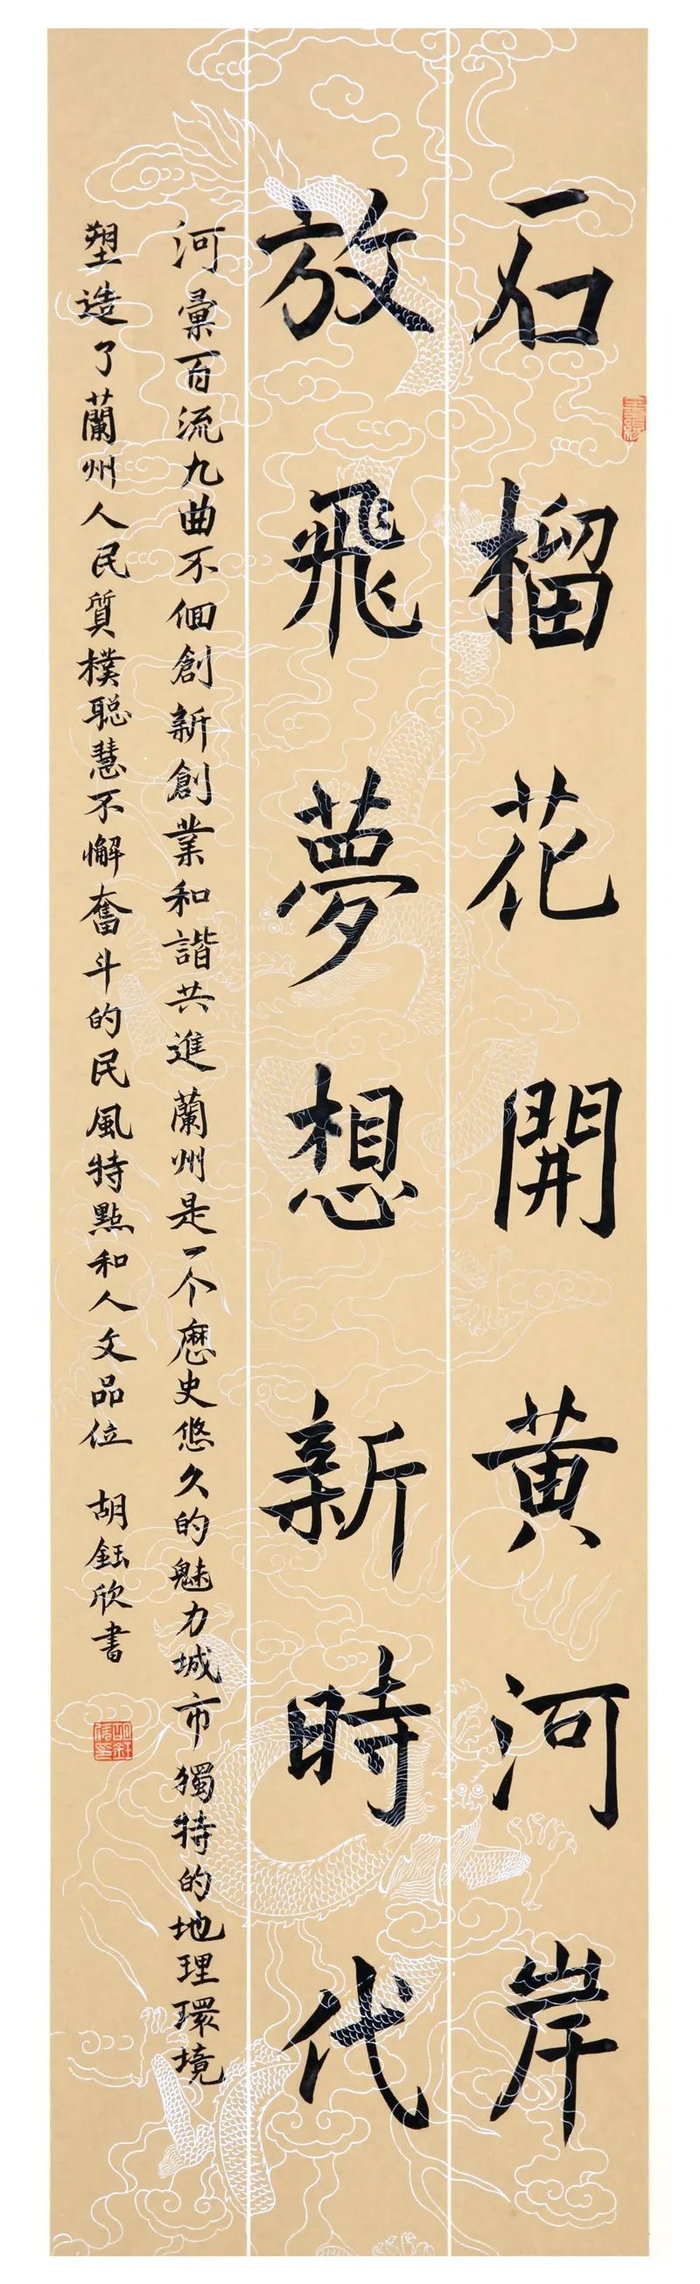 石榴花開黄河岸
放飛夢想新時代
河彙百流九曲不佪創新創業和諧共進蘭州是一个歷史悠久的魅力城市獨特的地理環境
塑造了蘭州人民質樸聪慧不懈奮斗的民風特點和人文品位 胡鈺欣書